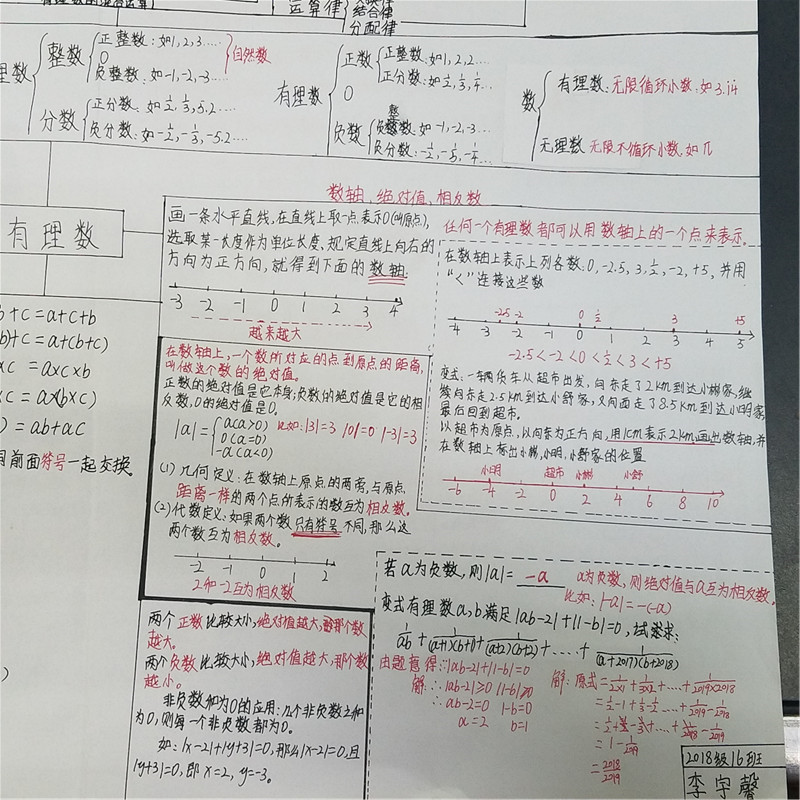 有理数的混合运算
运算律
交换律
结合律
分配律
理数
整数
正整数:如1,2,3....
0
负整数:如-1,-2,-3...
自然数
分数
正分数:如½,⅓,5.2...
负分数:如-½,-⅓,-5.2...
有理数
正数
正整数:如1,2,2...
正分数:如½,⅓,¼...
0
负数
负整数:如-1,-2,-3...
负分数:-½,-⅕,-¼...
数
有理数:无限循环小数:如3.14
无理数 无限不循环小数,如π
数轴、绝对值、相反数
有理数
画一条水平直线,在直线上取一点表示0(叫原点),
选取某一长度作为单位长度,规定直线上向右的
方向为正方向,就得到下面的数轴:
-3 -2 -1 0 1 2 3 4
越来越大
任何一个有理数都可以用数轴上的一个点来表示。
在数轴上表示上列各数:0,-2.5,3,½,-2,+5,并用
“<”连接这些数
-2.5 -2 0 ½ 3 +5
-4 -3 -2 -1 0 1 2 3 4 5
-2.5<-2<0<½<3<+5
变式:一辆货车从超市出发,向东走了2km到达小彬家,继
续向东走2.5km到达小舒家,又向西走了8.5km到达小明家,
最后回到超市。
以超市为原点,以向东为正方向,用1cm表示2km画出数轴,并
在数轴上标出小彬,小明,小舒家的位置
小明 超市 小彬 小舒
-6 -4 -2 0 2 4 6 8 10
b+c=a+c+b
b)+c=a+(b+c)
×c=a×c×b
×c=a×(b×c)
)=ab+ac
目前面符号一起交换
在数轴上,一个数所对应的点到原点的距离,
叫做这个数的绝对值。
正数的绝对值是它本身;负数的绝对值是它的相
反数,0的绝对值是0。
|a|={a(a>0)
0(a=0)
-a(a<0)
比如:|3|=3 |0|=0 |-3|=3
(1)几何定义:在数轴上原点的两旁,与原点
距离一样的两个点所表示的数互为相反数。
(2)代数定义:如果两个数只有符号不同,那么这
两个数互为相反数。
-2 -1 0 1 2
2和-2互为相反数
两个正数比较大小,绝对值越大,那个数
越大。
两个负数比较大小,绝对值越大,那个数
越小。
非负数和为0的应用:几个非负数之和
为0,则每一个非负数都为0。
如:|x-2|+|y+3|=0,那么|x-2|=0,且
|y+3|=0,即x=2,y=-3。
若a为负数,则|a|=-a
a为负数,则绝对值与a互为相反数,
比如:|-a|=-(-a)
变式有理数a,b满足|ab-2|+|1-b|=0,试求:
1/ab+1/(a+1)(b+1)+1/(a+2)(b+2)+....+1/(a+2017)(b+2018)
由题意得:|ab-2|+|1-b|=0
解:∴|ab-2|≥0 |1-b|≥0
∴ab-2=0 1-b=0
a=2 b=1
解:原式=1/2×1+1/3×2+....+1/2019×2018
=1/1-1/2+1/2-...+1/2018-1/2019
=1-1/2019
=2018/2019
2018级16班
李宇馨